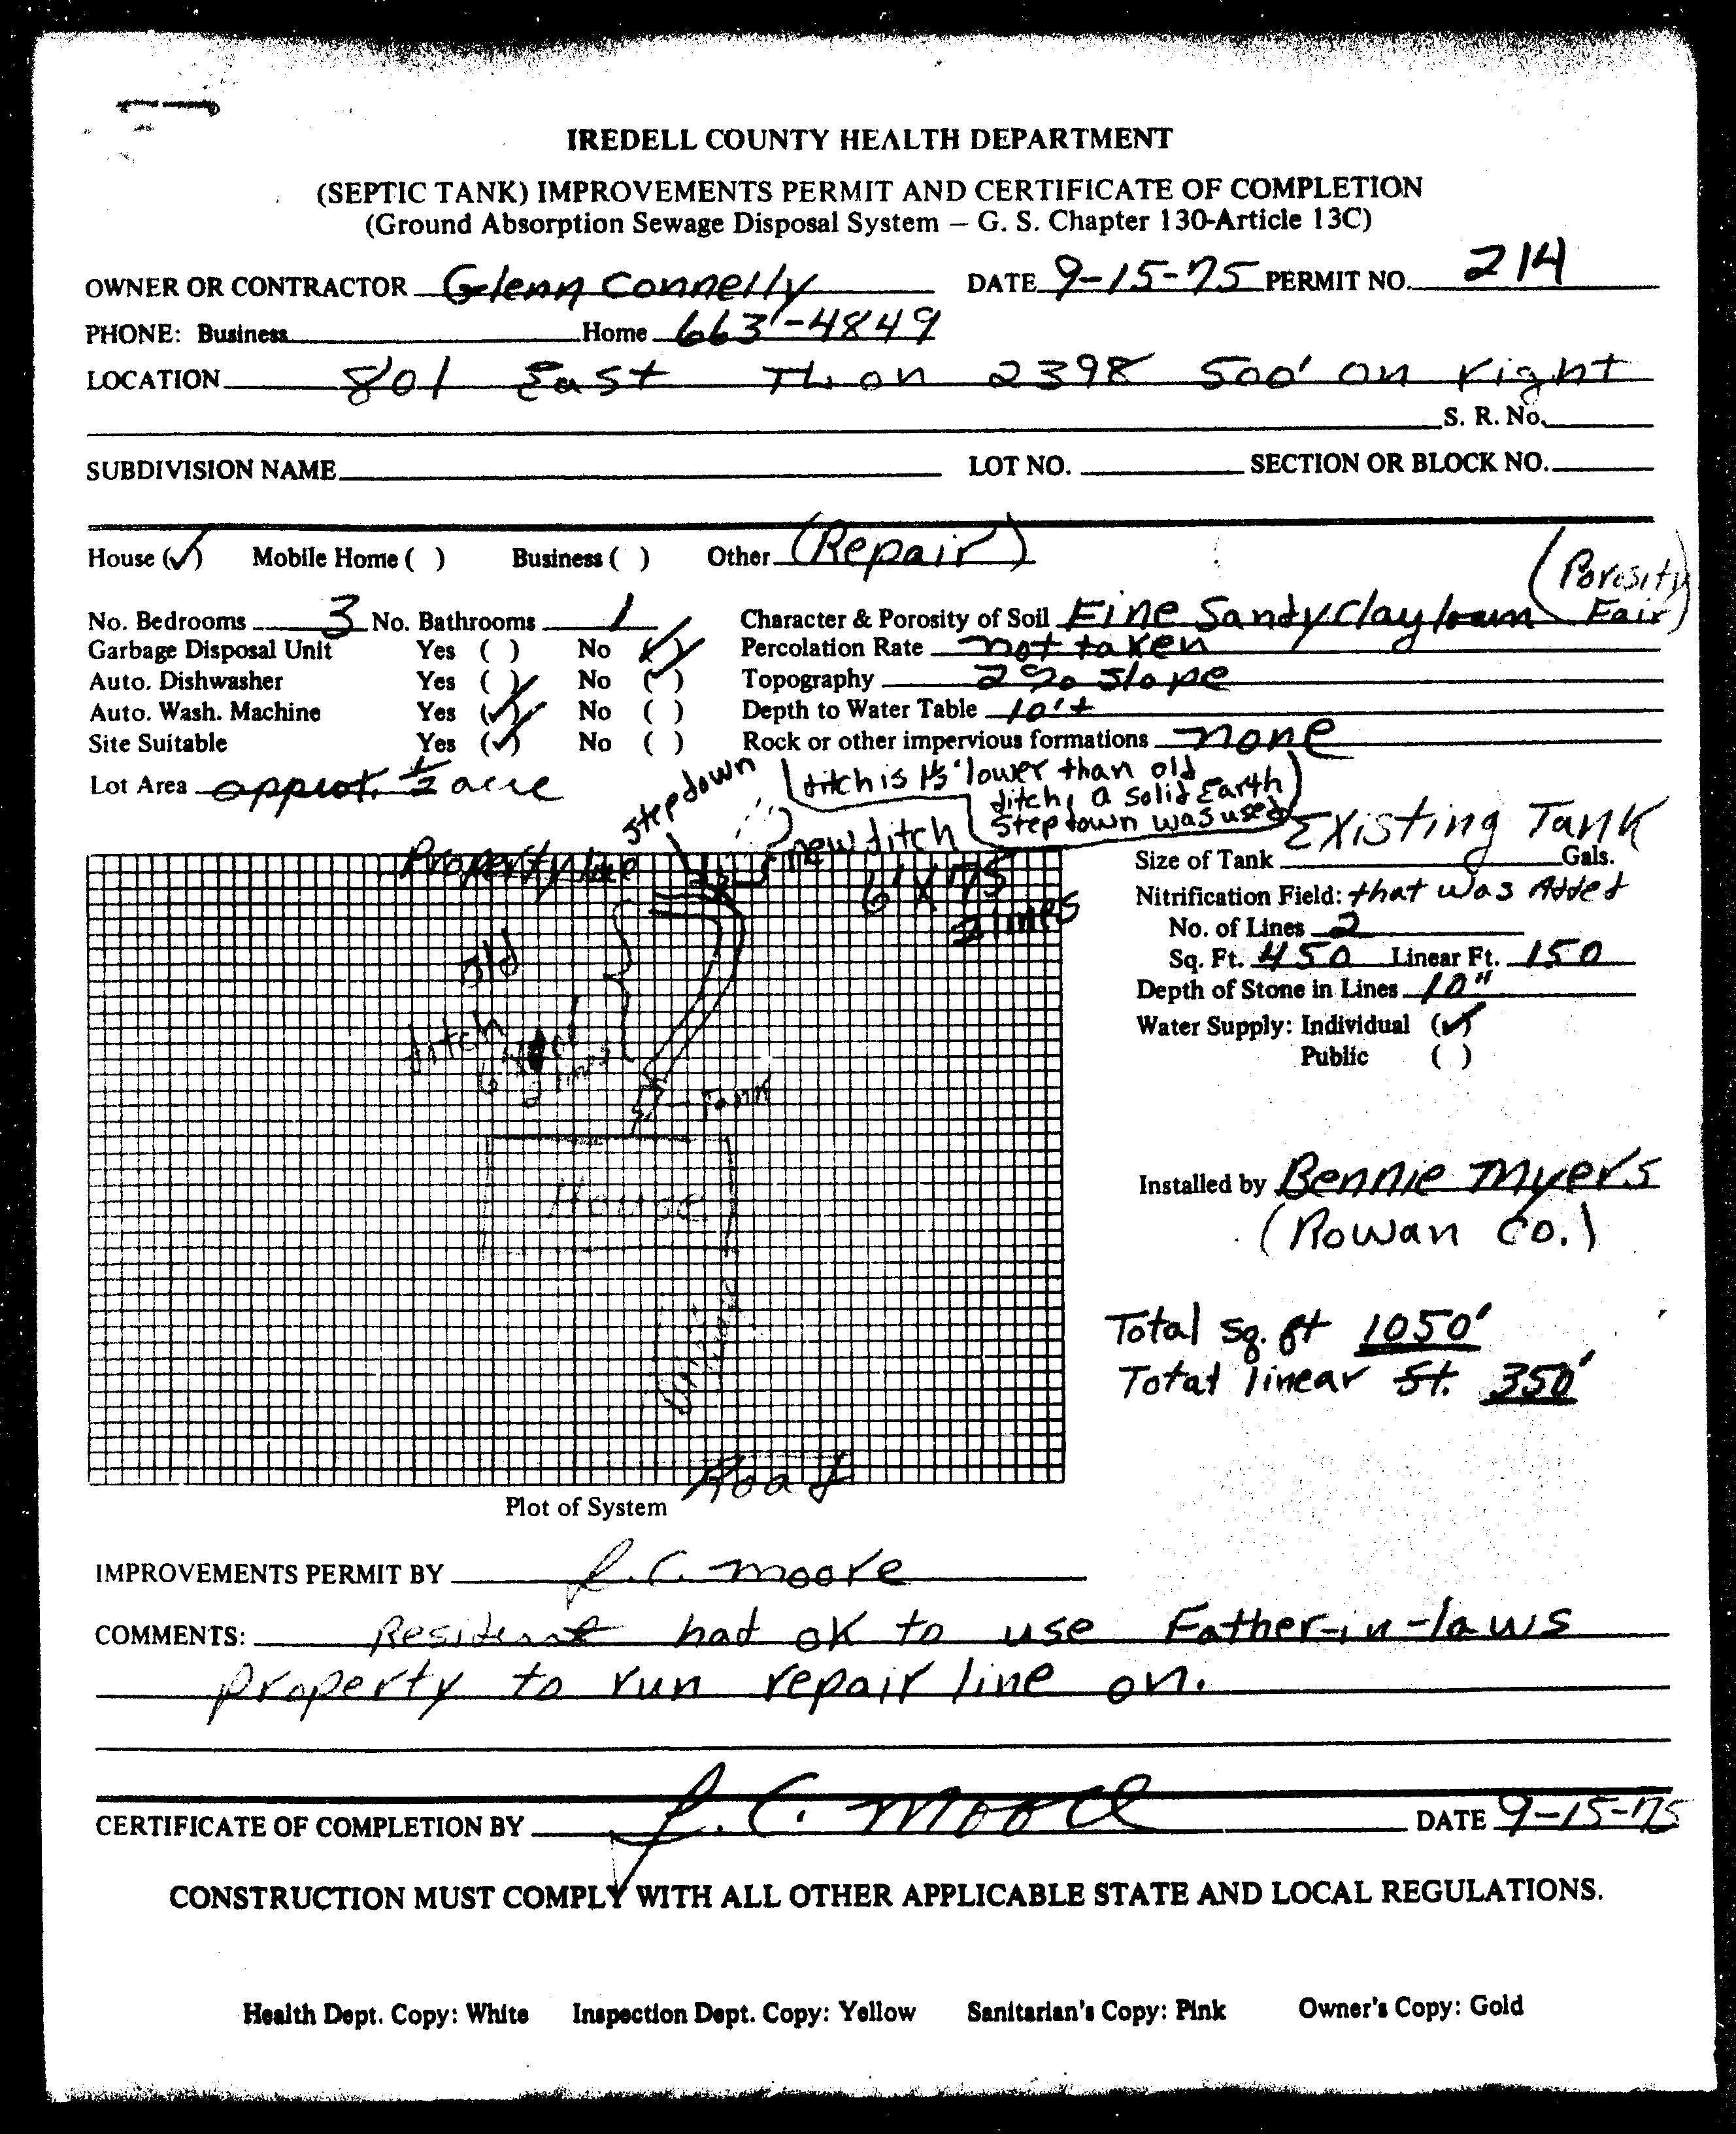 IREDELL COUNTY HEALTH DEPARTMENT
(SEPTIC TANK) IMPROVEMENTS PERMIT AND CERTIFICATE OF COMPLETION
(Ground Absorption Sewage Disposal System – G. S. Chapter 130-Article 13C)
OWNER OR CONTRACTOR Glenn Connelly DATE 9-15-75 PERMIT NO. 214
PHONE: Business Home 663-4849
LOCATION 801 East TL on 2398 500' on right
S. R. No.
SUBDIVISION NAME LOT NO. SECTION OR BLOCK NO.
House (✓) Mobile Home ( ) Business ( ) Other (Repair)
(Porosity
No. Bedrooms 3 No. Bathrooms 1 Character & Porosity of Soil Fine Sandy Clay loam Fair)
Garbage Disposal Unit Yes ( ) No (✓) Percolation Rate not taken
Auto. Dishwasher Yes ( ) No (✓) Topography 2% slope
Auto. Wash. Machine Yes (✓) No ( ) Depth to Water Table 10'+
Site Suitable Yes (✓) No ( ) Rock or other impervious formations none
Lot Area approx. ½ acre
stepdown
ditch is lower than old
ditch, a solid Earth
Step down was used
Existing Tank
new ditch
Property line
6' X 75
2 lines
Size of Tank Gals.
Nitrification Field: that was Added
No. of Lines 2
Sq. Ft. 450 Linear Ft. 150
Depth of Stone in Lines 10"
Water Supply: Individual (✓)
Public ( )
old
ditch
Tank
House
Installed by Bennie Myers
(Rowan Co.)
Total sq. ft 1050'
Total linear ft. 350'
Road
Plot of System
IMPROVEMENTS PERMIT BY J. C. Moore
COMMENTS: Resident had ok to use Father-in-laws
property to run repair line on.
CERTIFICATE OF COMPLETION BY J. C. Moore DATE 9-15-75
CONSTRUCTION MUST COMPLY WITH ALL OTHER APPLICABLE STATE AND LOCAL REGULATIONS.
Health Dept. Copy: White Inspection Dept. Copy: Yellow Sanitarian's Copy: Pink Owner's Copy: Gold